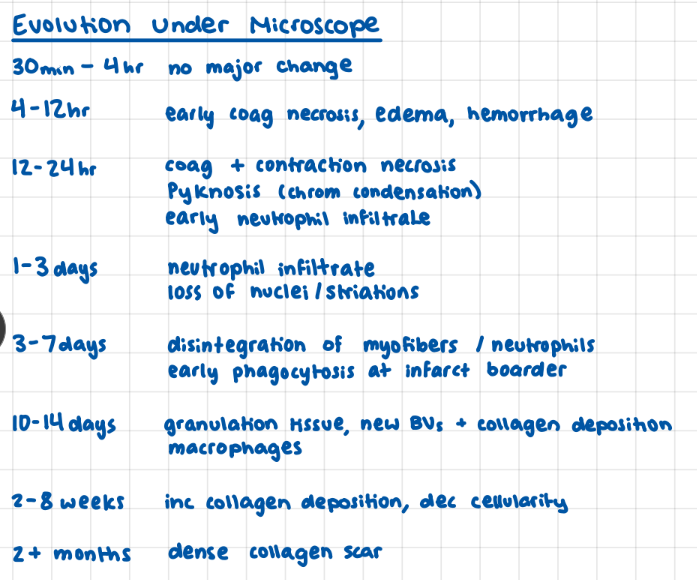 Evolution under Microscope
30min - 4hr no major change
4-12hr early coag necrosis, edema, hemorrhage
12-24hr coag + contraction necrosis
Pyknosis (chrom condensation)
early neutrophil infiltrate
1-3 days neutrophil infiltrate
loss of nuclei/striations
3-7days disintegration of myofibers / neutrophils
early phagocytosis at infarct boarder
10-14 days granulation tissue, new BVs + collagen deposition
macrophages
2-8 weeks inc collagen deposition, dec cellularity
2+ months dense collagen scar